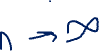 n → ∞